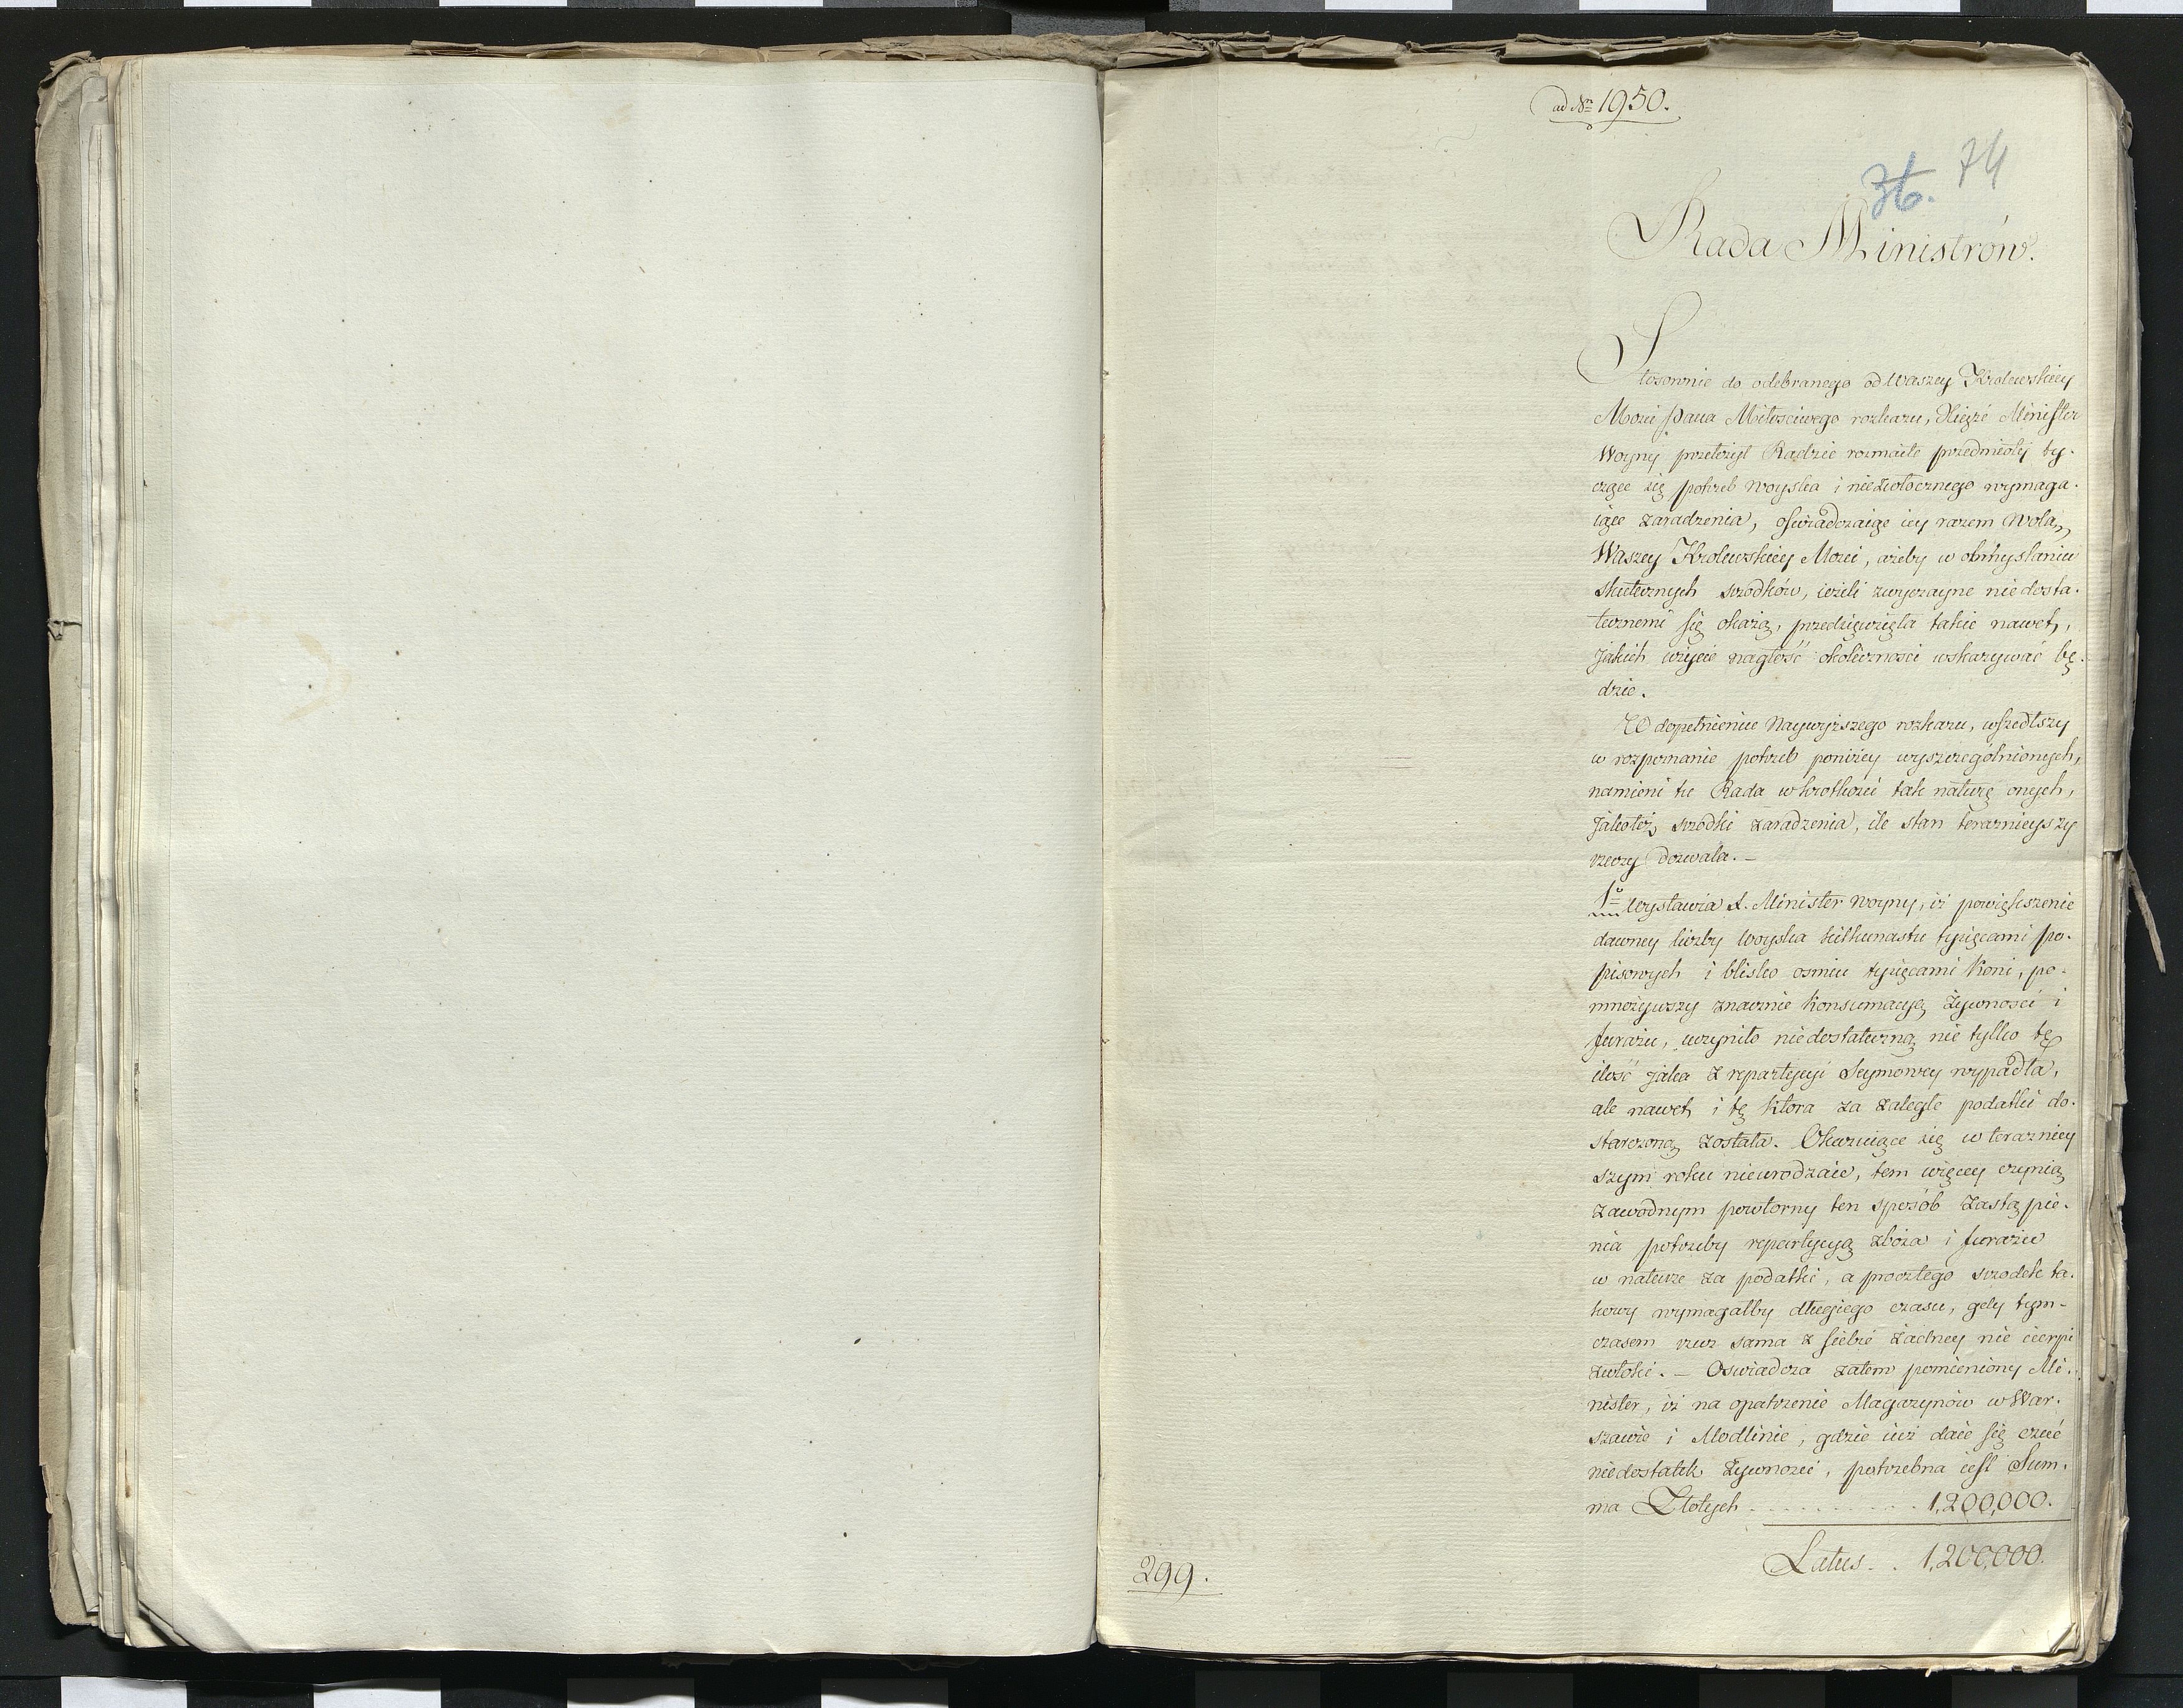 ad Nrn 1950.
36. 74
Rada Ministrów.
Stosownie do odebranego od Waszey Krolewskiey
Mosci Pana Miłosciwego rozkazu, Xiąże Minister
Woyny przełożył Radzie rozmaite przedmioty ty-
czące się potrzeb woyska i niezwłocznego wymaga-
iące zaradzenia, oswiadczaiąc iey razem Wolą
Waszey Krolewskiey Mosci, ażeby w obmyslaniu
skutecznych srzodków, ieżeli zwyczayne niedosta-
tecznemi się okażą, przedsięwzięła takie nawet,
jakich użycie nagłość okoliczności wskazywać bę-
dzie.
W dopełnieniu Naywyższego rozkazu, wszedłszy
w rozpoznanie potrzeb poniżey wyszczególnionych,
namieni tu Rada w krotkości tak naturę onych,
jakoteż srzodki zaradzenia, ile stan teraznieyszy
rzeczy dozwala. -
1o Wystawia X. Minister Woyny, iż powiększenie
dawney liczby Woyska kilkunastu tysięcami po-
pisowych i blisko osmiu tysięcami Koni, po-
mnożywszy znacznie konsumacyą żywności i
furażu, uczyniło niedostateczną nie tylko tę
ilość jaka z repartycyi Seymowey wypadła,
ale nawet i tę która za zaległe podatki do-
starczoną została. Okazuiące się w terazniey
szym roku nieurodzaie, tem więcey czynią
zawodnym powtorny ten sposób zastąpie-
nia potrzeby repartycyą zboża i furażu
w naturze za podatki, a procztego srzodek ta-
kowy wymagałby długiego czasu, gdy tym-
czasem rzecz sama z siebie żadney nie cierpi
zwłoki. - Oswiadcza zatem pomieniony Mi-
nister, iż na opatrzenie Magazynów w War-
szawie i Modlinie, gdzie iuż daie się czuć
niedostatek żywności, potrzebna iest Sum-
ma Złotych . . . . . . . . . . 1,200,000.
Latus . . 1,200,000.
299.